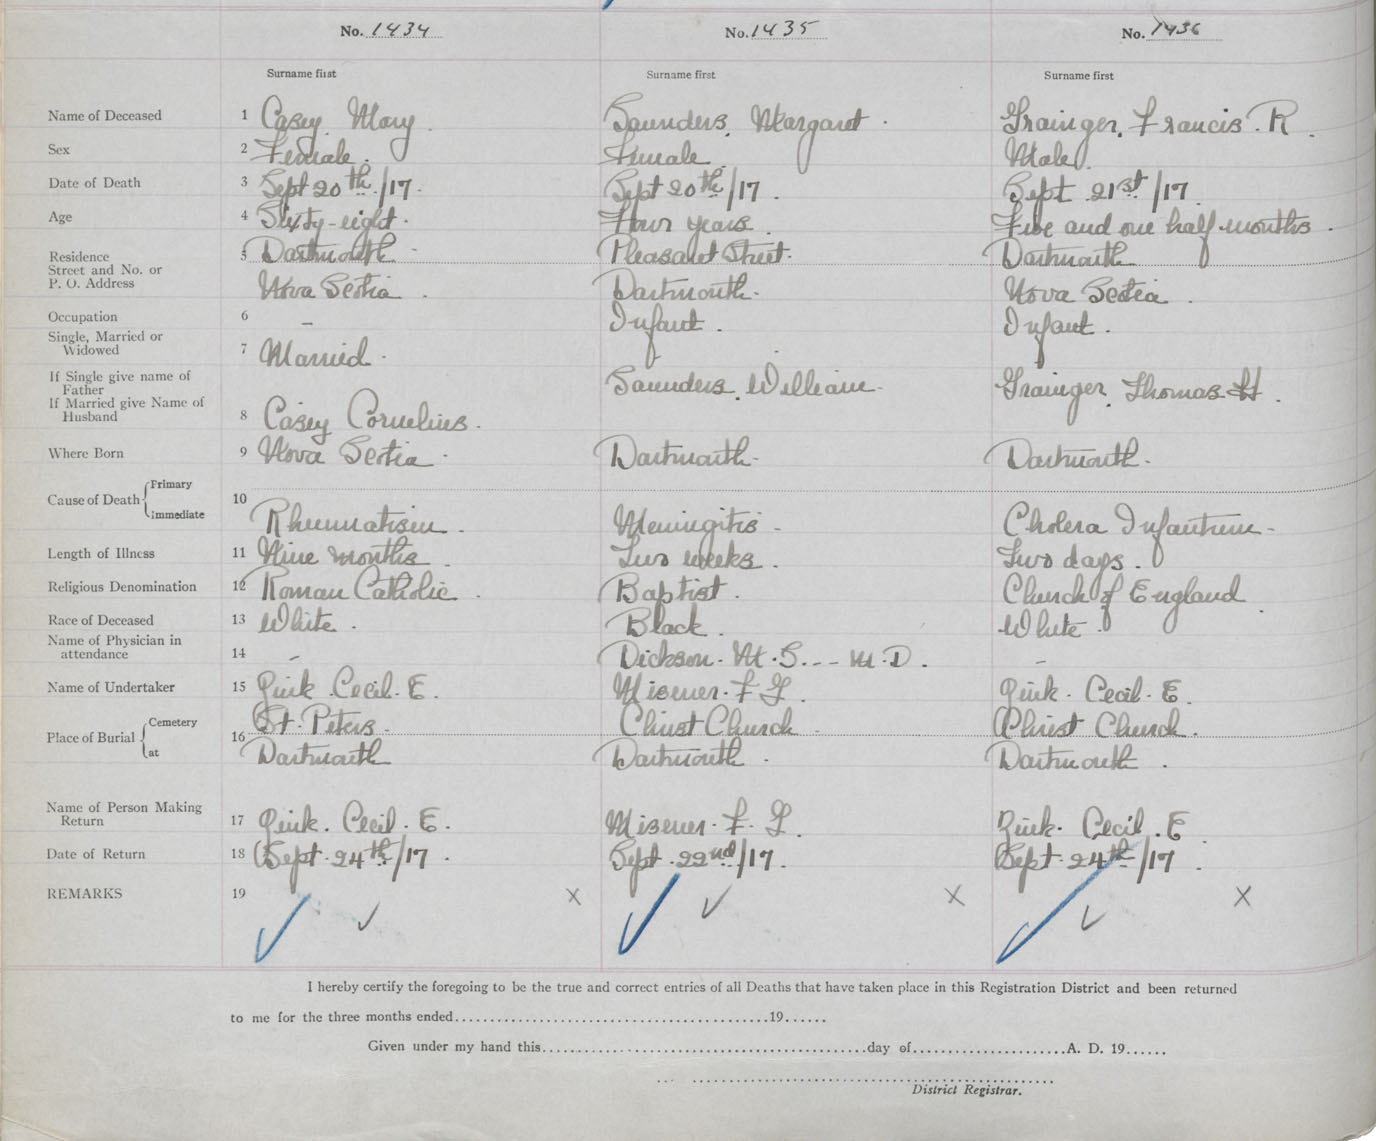 No. 1434 No. 1435 No. 1436
Surname first Surname first Surname first
Name of Deceased 1 Casey, Mary. Saunders, Margaret. Grainger, Francis. R.
Sex 2 Female. Female. Male.
Date of Death 3 Sept 20th/17. Sept 20th/17. Sept 21st/17.
Age 4 Sixty-eight. Four years. Five and one half months.
Residence 5 Dartmouth Pleasant Street. Dartmouth
Street and No. or
P. O. Address Nova Scotia. Dartmouth. Nova Scotia.
Occupation 6 – Infant. Infant.
Single, Married or
Widowed 7 Married.
If Single give name of
Father Saunders, William. Grainger, Thomas H.
If Married give Name of
Husband 8 Casey Cornelius.
Where Born 9 Nova Scotia. Dartmouth. Dartmouth.
Cause of Death Primary
Immediate 10 Rheumatism. Meningitis. Cholera Infantum.
Length of Illness 11 Nine months. Two weeks. Two days.
Religious Denomination 12 Roman Catholic. Baptist. Church of England.
Race of Deceased 13 White. Black. White.
Name of Physician in
attendance 14 – Dickson. M. S. -- M. D. –
Name of Undertaker 15 Zink. Cecil. E. Misener. F G. Zink. Cecil. E.
Place of Burial Cemetery 16 St. Peters. Christ Church. Christ Church.
at Dartmouth Dartmouth. Dartmouth.
Name of Person Making
Return 17 Zink. Cecil. E. Misener. F. G. Zink. Cecil. E
Date of Return 18 Sept. 24th/17. Sept. 22nd/17. Sept. 24th/17.
REMARKS 19 ✓ ✓ x ✓ ✓ x ✓ ✓ x
I hereby certify the foregoing to be the true and correct entries of all Deaths that have taken place in this Registration District and been returned
to me for the three months ended..........19......
Given under my hand this..........day of..........A. D. 19......
District Registrar.